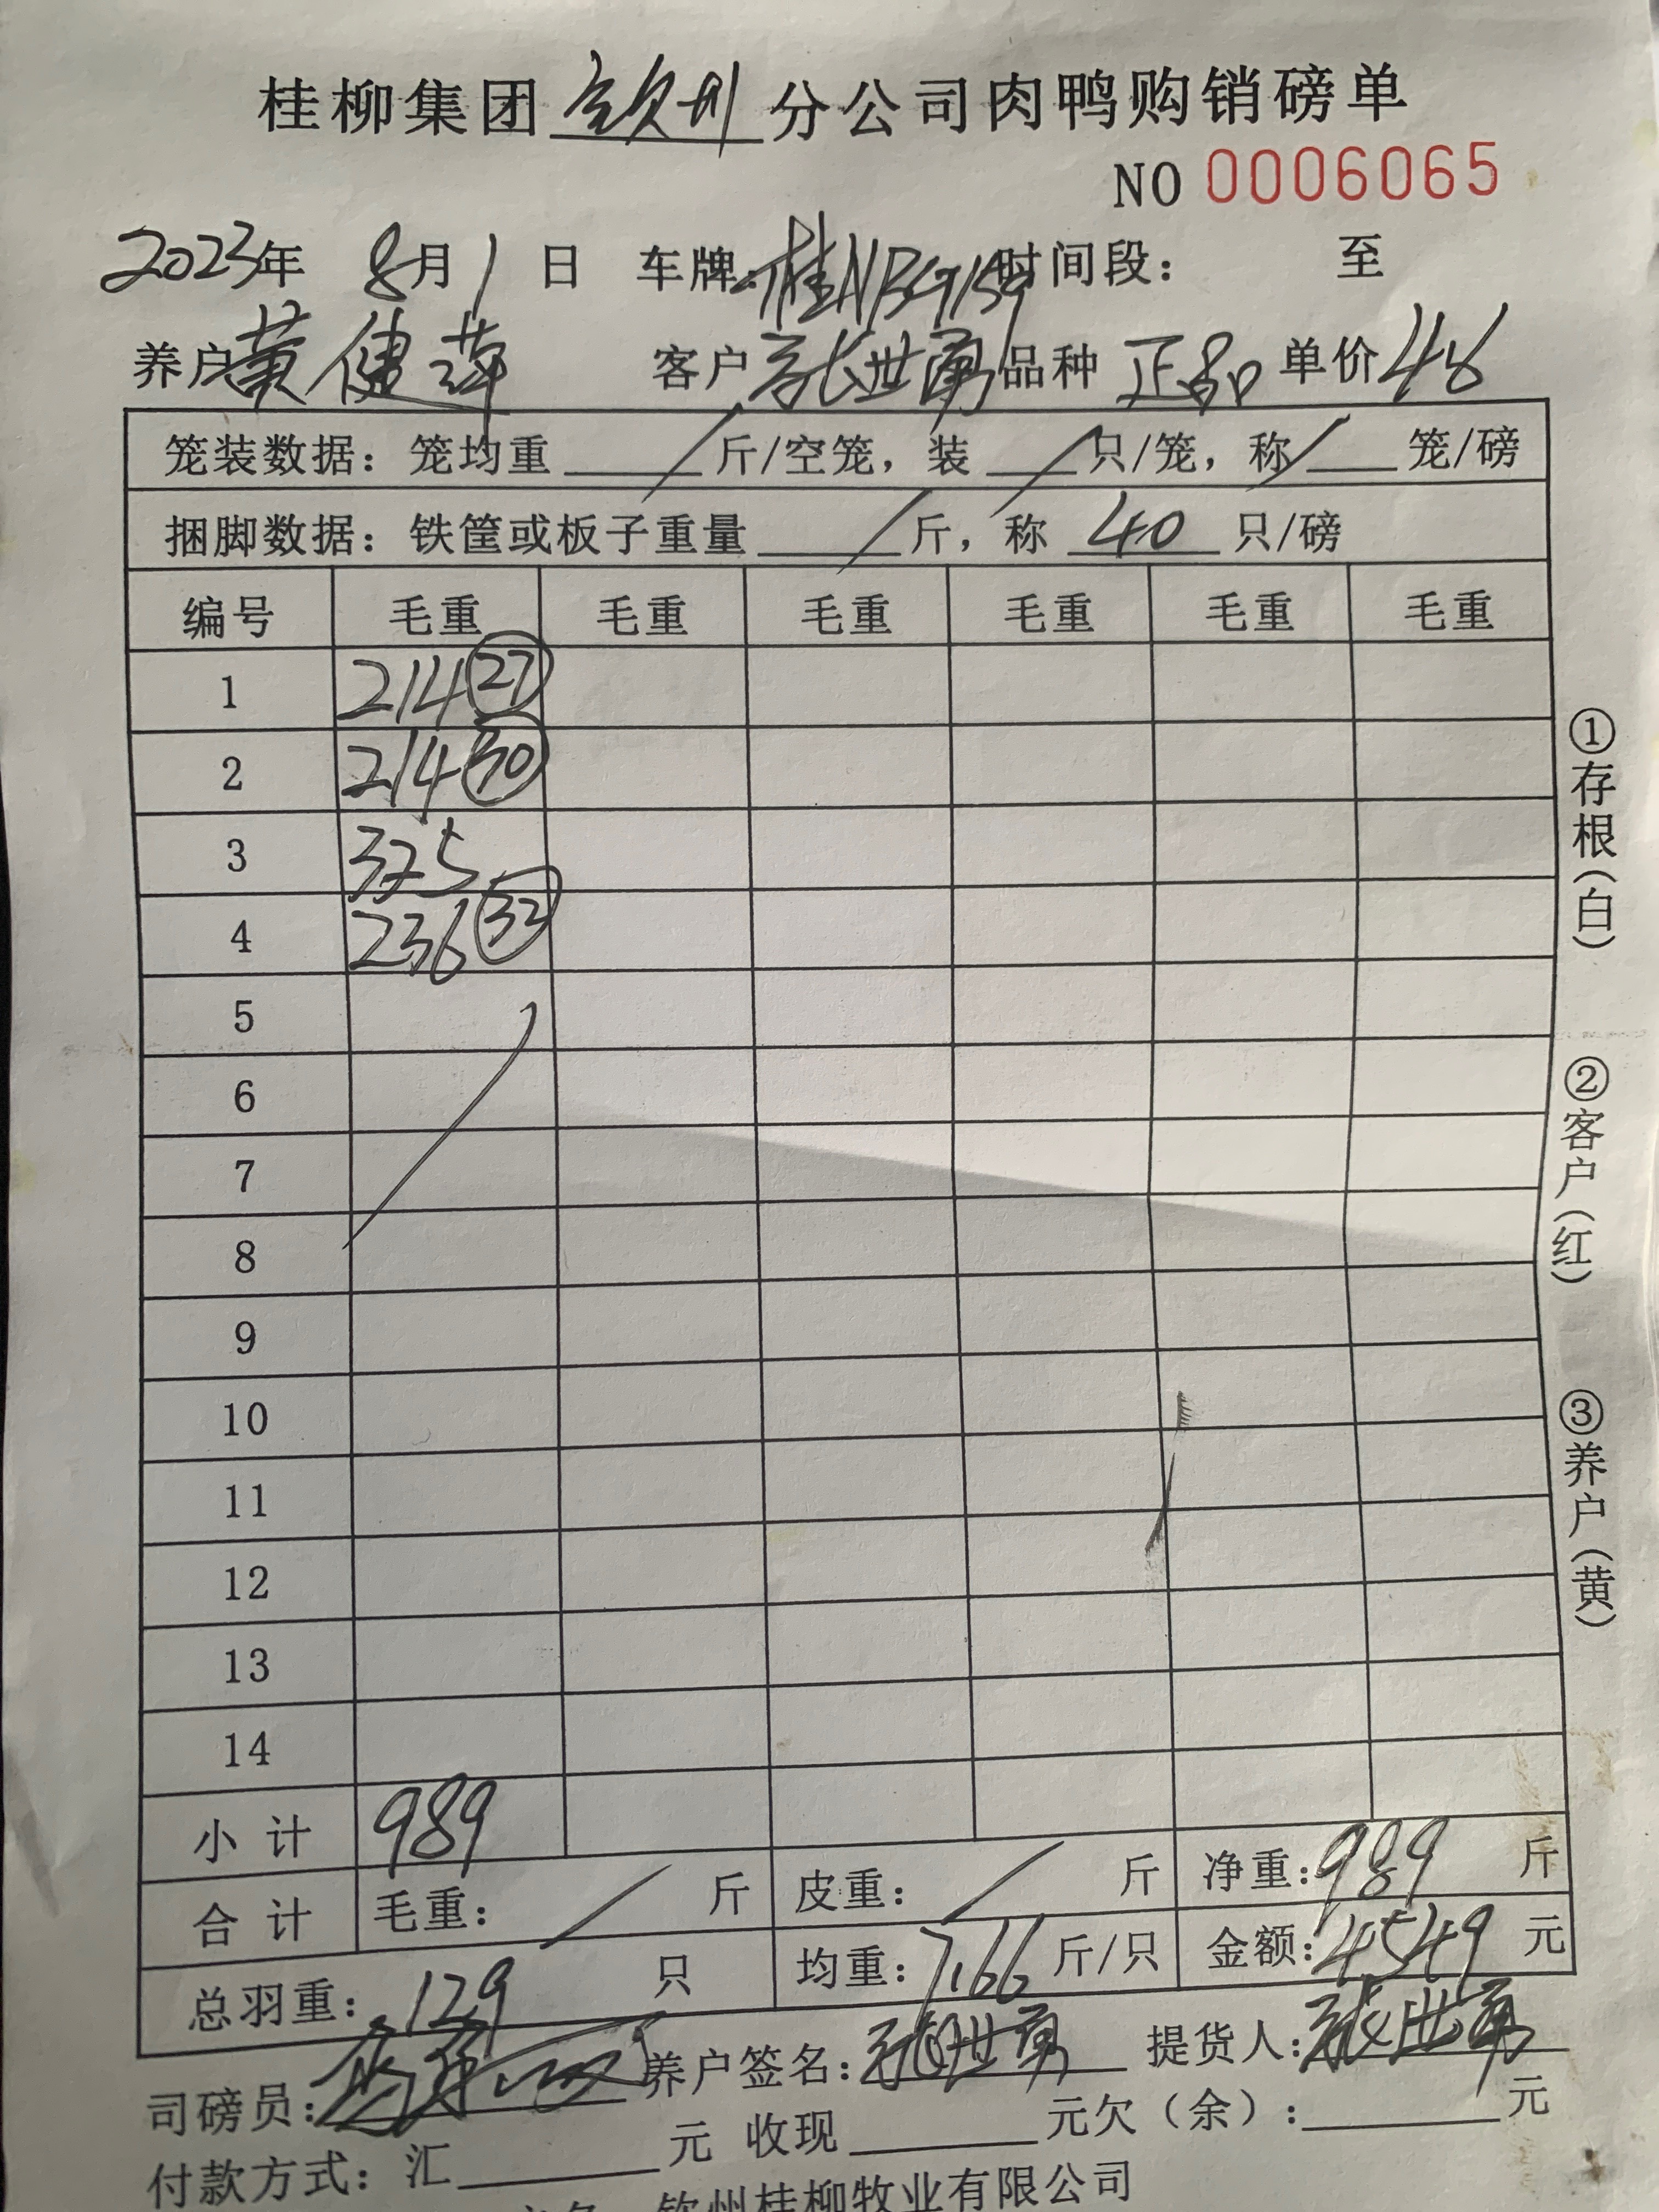 桂柳集团钦州分公司肉鸭购销磅单
NO 0006065
2023年 8月1日 车牌:桂N 时间段: 至
养户黄健萍 客户张世勇 品种正品 单价4.6
笼装数据: 笼均重 / 斤/空笼, 装 / 只/笼, 称 / 笼/磅
捆脚数据: 铁筐或板子重量 / 斤, 称 40 只/磅
编号 毛重 毛重 毛重 毛重 毛重 毛重
1 214 (27)
2 214 (30)
3 325
4 236 (32)
5
6
7
8
9
10
11
12
13
14
小计 989
合计 毛重: / 斤 皮重: / 斤 净重:989 斤
总羽重: 129 只 均重:7.66 斤/只 金额:4549 元
司磅员: 养户签名:张世勇 提货人:张世勇
付款方式: 汇 元 收现 元欠(余): 元
钦州桂柳牧业有限公司
①存根(白)
②客户(红)
③养户(黄)